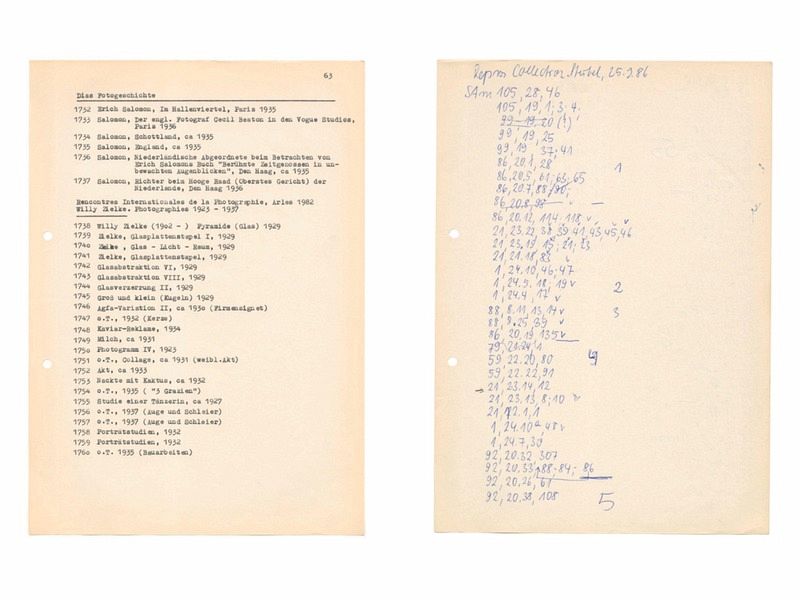 63
Dias Fotogeschichte
1732 Erich Salomon, Im Hallenviertel, Paris 1935
1733 Salomon, Der engl. Fotograf Cecil Beaton in den Vogue Studios,
Paris 1936
1734 Salomon, Schottland, ca 1935
1735 Salomon, England, ca 1935
1736 Salomon, Niederländische Abgeordnete beim Betrachten von
Erich Salomons Buch "Berühmte Zeitgenossen in un-
bewachten Augenblicken", Den Haag, ca 1935
1737 Salomon, Richter beim Hooge Raad (Oberstes Gericht) der
Niederlande, Den Haag 1936
Rencontres Internationales de la Photographie, Arles 1982
Willy Zielke, Photographies 1923 - 1937
1738 Willy Zielke (1902 - ) Pyramide (Glas) 1929
1739 Zielke, Glasplattenstapel I, 1929
1740 Zielke, Glas - Licht - Raum, 1929
1741 Zielke, Glasplattenstapel, 1929
1742 Glasabstraktion VI, 1929
1743 Glasabstraktion VIII, 1929
1744 Glasverzerrung II, 1929
1745 Groß und klein (Kugeln) 1929
1746 Agfa-Variation II, ca 1930 (Firmensignet)
1747 o.T., 1932 (Kerze)
1748 Kaviar-Reklame, 1934
1749 Milch, ca 1931
1750 Photogramm IV, 1923
1751 o.T., Collage, ca 1931 (weibl.Akt)
1752 Akt, ca 1933
1753 Nackte mit Kaktus, ca 1932
1754 o.T., 1935 ( "3 Grazien")
1755 Studie einer Tänzerin, ca 1927
1756 o.T., 1937 (Auge und Schleier)
1757 o.T., 1937 (Auge und Schleier)
1758 Porträtstudien, 1932
1759 Porträtstudien, 1932
1760 o.T. 1935 (Bauarbeiten)
Repros Collection Stübel, 25.
SAm 105, 28, 46
105, 19, 1; 3; 4.
99, 19, 20 (!)
99, 19, 25
99, 19 37; 41
86, 20.1, 28 1
86, 20.5, 61, 63, 65
86, 20.7, 88, 90,
86, 20.8,
86, 20.12, 114, 118,
21, 23.22, 38, 39, 41, 43, 45, 46
21, 23.19, 21; 23
21, 21.18, 83
1, 24.10, 46; 47
1, 24.9, 18; 19 2
1, 24.4, 17
88, 8.11, 13, 14 3
88, 8.25, 39
86, 20.19 135
79, 1
59 22.20, 80 4
59 22.22, 91
21, 23.14, 12
21, 23.13, 8; 10
21, 1, 1
1, 24.10 48
1, 24.7, 30
92, 20.32, 307
92, 20.33, 88, 84; 86
92, 20.26, 61
92, 20.38, 108 5